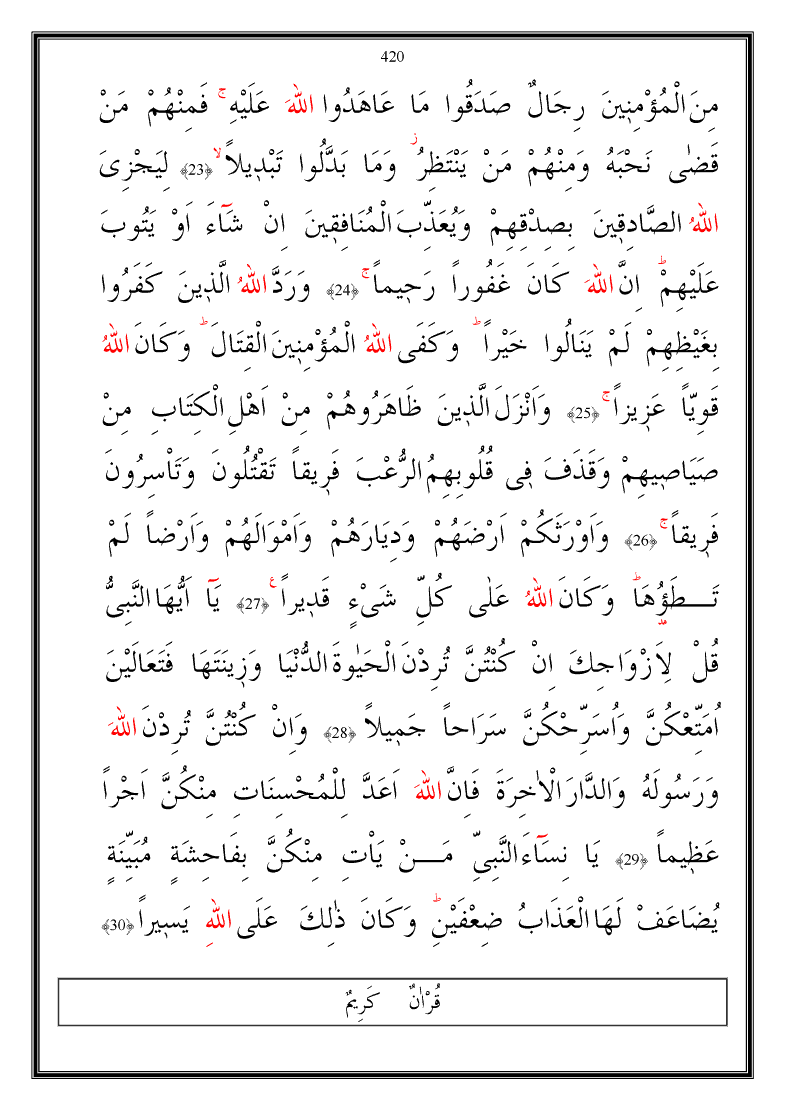 420
مِنَ الْمُؤْمِنٖينَ رِجَالٌ صَدَقُوا مَا عَاهَدُوا اللّٰهَ عَلَيْهِۚ فَمِنْهُمْ مَنْ
قَضٰى نَحْبَهُ وَمِنْهُمْ مَنْ يَنْتَظِرُؗ وَمَا بَدَّلُوا تَبْدٖيلاًۙ ﴿23﴾ لِيَجْزِىَ
اللّٰهُ الصَّادِقٖينَ بِصِدْقِهِمْ وَيُعَذِّبَ الْمُنَافِقٖينَ اِنْ شَٓاءَ اَوْ يَتُوبَ
عَلَيْهِمْؕ اِنَّ اللّٰهَ كَانَ غَفُوراً رَحٖيماًۚ ﴿24﴾ وَرَدَّ اللّٰهُ الَّذٖينَ كَفَرُوا
بِغَيْظِهِمْ لَمْ يَنَالُوا خَيْراًؕ وَكَفَى اللّٰهُ الْمُؤْمِنٖينَ الْقِتَالَؕ وَكَانَ اللّٰهُ
قَوِيّاً عَزٖيزاًۚ ﴿25﴾ وَاَنْزَلَ الَّذٖينَ ظَاهَرُوهُمْ مِنْ اَهْلِ الْكِتَابِ مِنْ
صَيَاصٖيهِمْ وَقَذَفَ فٖى قُلُوبِهِمُ الرُّعْبَ فَرٖيقاً تَقْتُلُونَ وَتَاْسِرُونَ
فَرٖيقاًۚ ﴿26﴾ وَاَوْرَثَكُمْ اَرْضَهُمْ وَدِيَارَهُمْ وَاَمْوَالَهُمْ وَاَرْضاً لَمْ
تَـــطَؤُ۫هَاؕ وَكَانَ اللّٰهُ عَلٰى كُلِّ شَىْءٍ قَدٖيراًࣖ ﴿27﴾ يَٓا اَيُّهَا النَّبِىُّ
قُلْ لِاَزْوَاجِكَ اِنْ كُنْتُنَّ تُرِدْنَ الْحَيٰوةَ الدُّنْيَا وَزٖينَتَهَا فَتَعَالَيْنَ
اُمَتِّعْكُنَّ وَاُسَرِّحْكُنَّ سَرَاحاً جَمٖيلاً ﴿28﴾ وَاِنْ كُنْتُنَّ تُرِدْنَ اللّٰهَ
وَرَسُولَهُ وَالدَّارَ الْاٰخِرَةَ فَاِنَّ اللّٰهَ اَعَدَّ لِلْمُحْسِنَاتِ مِنْكُنَّ اَجْراً
عَظٖيماً ﴿29﴾ يَا نِسَٓاءَ النَّبِىِّ مَـــنْ يَاْتِ مِنْكُنَّ بِفَاحِشَةٍ مُبَيِّنَةٍ
يُضَاعَفْ لَهَا الْعَذَابُ ضِعْفَيْنِؕ وَكَانَ ذٰلِكَ عَلَى اللّٰهِ يَسٖيراً ﴿30﴾
قُرْاٰنٌ كَرٖيمٌ